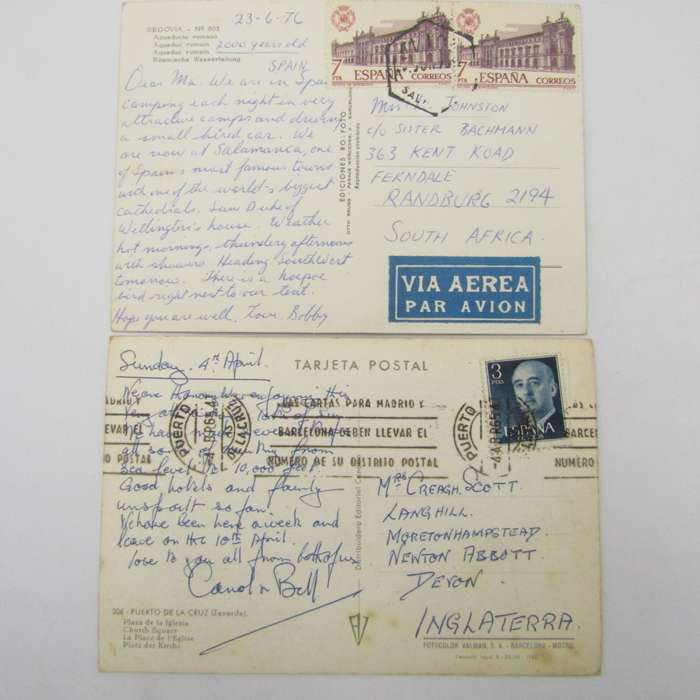 23-6-76
SEGOVIA. - Nº 803
Acueducto romano
Aqueduc romain 2000 years old
Römische Wasserleitung
SPAIN
Dear Ma. We are in Spain
camping each night in very
attractive camps and driving
a small hired car. We
are now at Salamanca, one
of Spain's most famous towns
with one of the world's biggest
cathedrals. Saw Duke of
Wellington's house. Weather
hot mornings, thundery afternoons
with showers Heading Southwest
tomorrow. There is a hoopoe
bird right next to our tent.
Hope you are well. Love. Bobby
EDICIONES RO-FOTO
Reproducción prohibida
7 PTA ESPAÑA CORREOS
7 PTA ESPAÑA CORREOS
JOHNSTON
c/o SISTER BACHMANN
363 KENT ROAD
FERNDALE
RANDBURG 2194
SOUTH AFRICA.
VIA AEREA
PAR AVION
Sunday. 4th April.
TARJETA POSTAL
3 PTAS
ESPAÑA
LAS CARTAS PARA MADRID Y
BARCELONA DEBEN LLEVAR EL
NUMERO DE SU DISTRITO POSTAL
PUERTO DE LA CRUZ
all so
sea level to 10,000 feet.
Good hotels and
unspoilt so far.
We have been here a week and
leave on the 10th April.
love to you all from both of us
Carol & Bill
Distribuidora Editorial
Mrs CREAGH. SCOTT.
LANGHILL.
MORETONHAMPSTEAD.
NEWTON ABBOTT.
DEVON.
INGLATERRA.
206 - PUERTO DE LA CRUZ (Tenerife).
Plaza de la Iglesia
Church Square
La Place de l'Eglise
Platz der Kirche
FOTOCOLOR VALMAN, S. A. - BARCELONA - MADRID